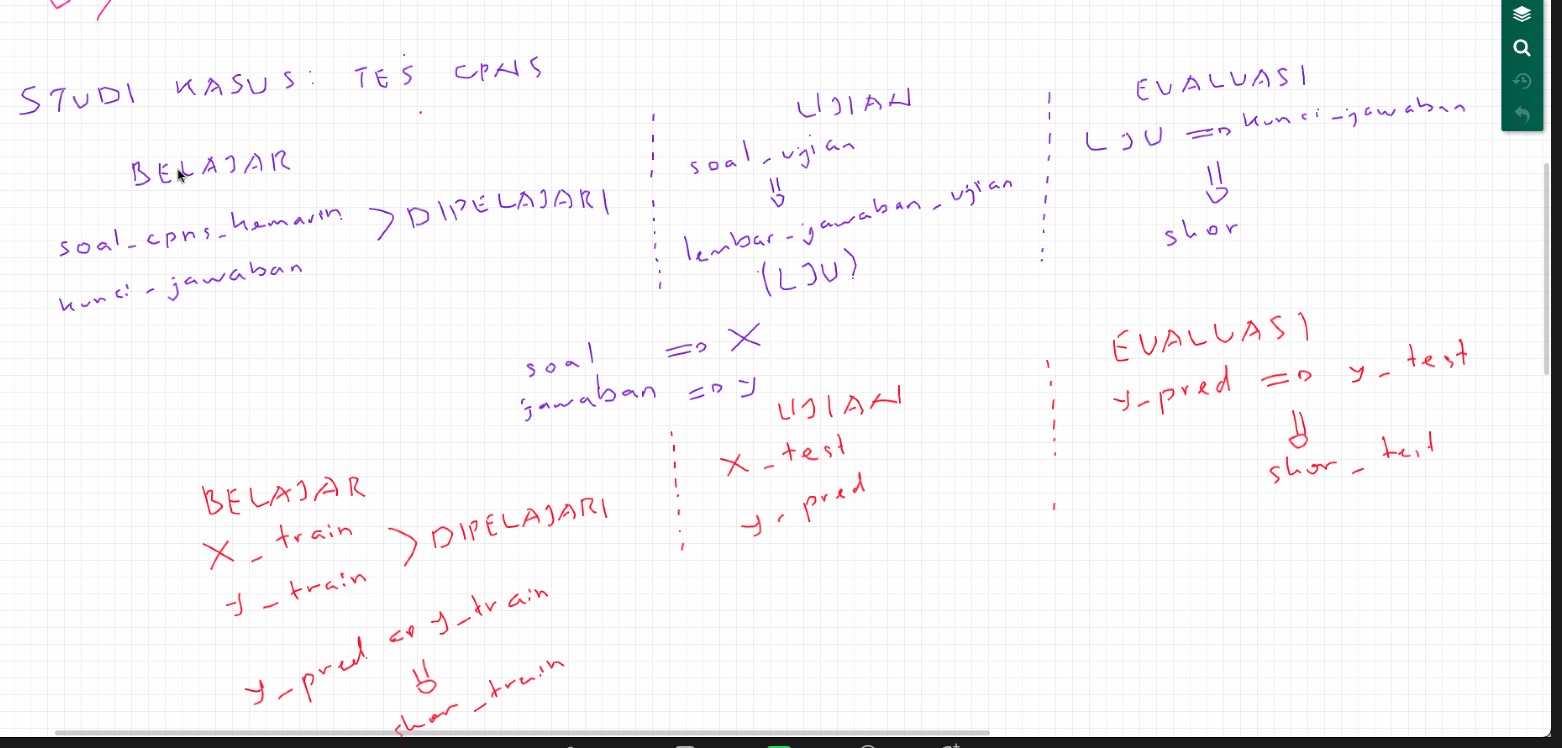 STUDI KASUS: TES CPNS
BELAJAR
soal_cpns_kemarin > DIPELAJARI
kunci-jawaban
UJIAN
soal_ujian
⇓
lembar-jawaban_ujian
(LJU)
EVALUASI
LJU => kunci-jawaban
⇓
skor
soal => X
jawaban => y
BELAJAR
X_train > DIPELAJARI
y_train
y_pred <=> y_train
⇓
skor_train
UJIAN
X_test
y-pred
EVALUASI
y-pred => y-test
⇓
skor_test